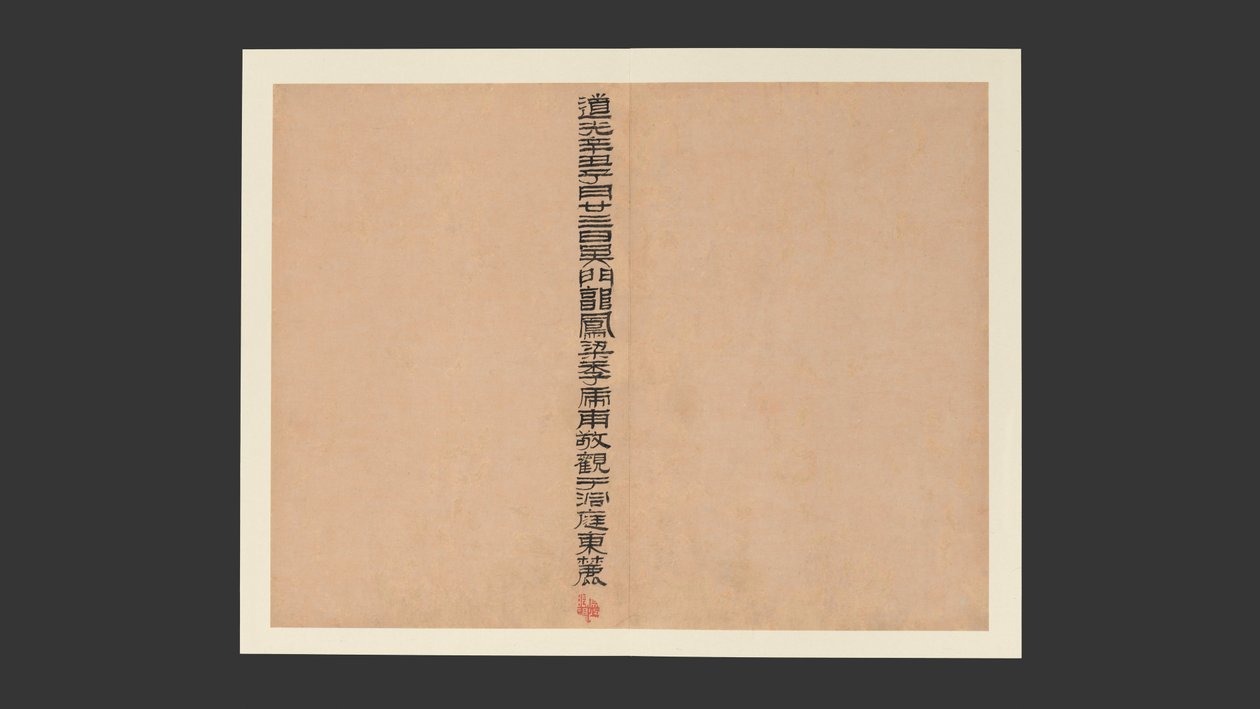 道光辛丑子月廿三日吳門龍鳳梁季甫敬觀于洞庭東麓